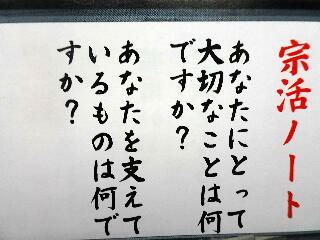 宗活ノート
あなたにとって
大切なことは何
ですか？
あなたを支えて
いるものは何で
すか？